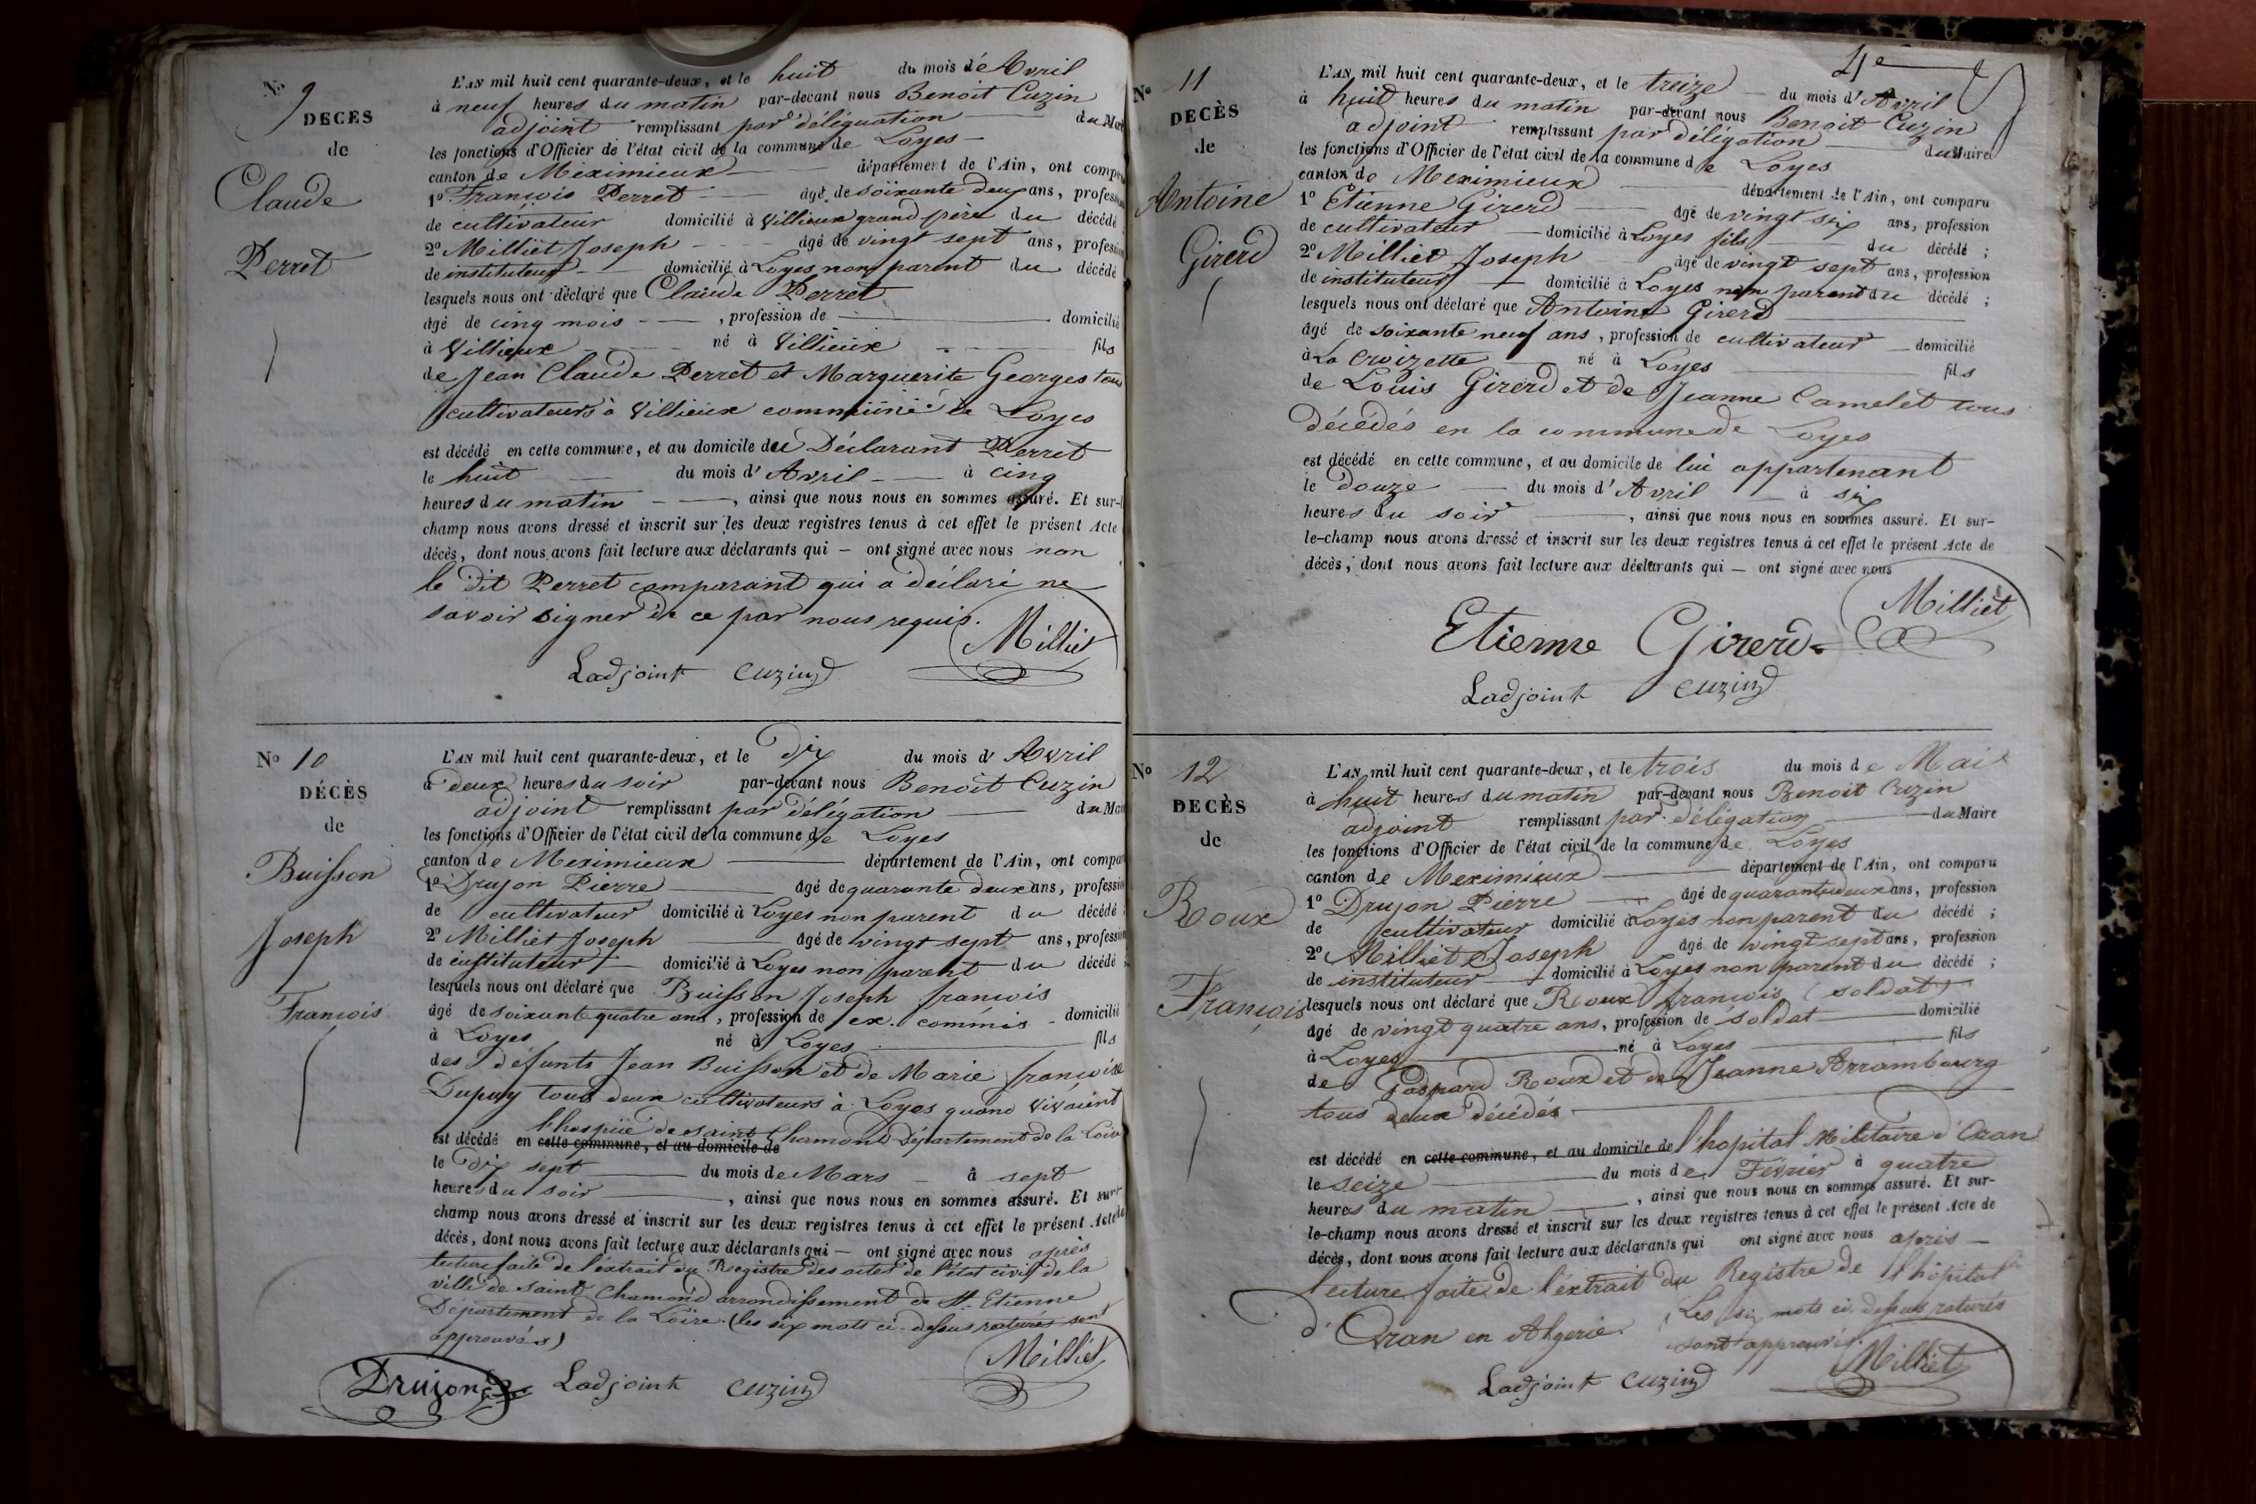 No 9
DECES
de
Claude
Perret
L'AN mil huit cent quarante-deux, et le huit du mois d'Avril
à neuf heures du matin par-devant nous Benoit Cuzin
adjoint remplissant par délégation du Mai
les fonctions d'Officier de l'état civil de la commune de Loyes
canton de Méximieux département de l'Ain, ont compa
1o François Perret âgé de soixante deux ans, profession
de cultivateur domicilié à Villieux grand père du décédé
2o Milliet Joseph âgé de vingt sept ans, profession
de instituteur domicilié à Loyes non parent du décédé
lesquels nous ont déclaré que Claude Perret
âgé de cinq mois , profession de domicilié
à Villieux né à Villieux fils
de Jean Claude Perret et Marguerite Georges tous
cultivateurs à Villieux commune de Loyes
est décédé en cette commune, et au domicile du Déclarant Perret
le huit du mois d'Avril à cinq
heures du matin , ainsi que nous nous en sommes assuré. Et sur-l
champ nous avons dressé et inscrit sur les deux registres tenus à cet effet le présent Acte
décès, dont nous avons fait lecture aux déclarants qui — ont signé avec nous non
le dit Perret comparant qui a déclaré ne
savoir signer de ce par nous requis.
Milliet
Ladjoint Cuzin
No 10
DÉCÈS
de
Buisson
Joseph
François
L'AN mil huit cent quarante-deux, et le Dix du mois d'Avril
à deux heures du soir par-devant nous Benoit Cuzin
adjoint remplissant par délégation du Mai
les fonctions d'Officier de l'état civil de la commune de Loyes
canton de Meximieux département de l'Ain, ont compa
1o Drujon Pierre âgé de quarante deux ans, profession
de cultivateur domicilié à Loyes non parent du décédé
2o Milliet Joseph âgé de vingt sept ans, profession
de instituteur domicilié à Loyes non parent du décédé
lesquels nous ont déclaré que Buisson Joseph françois
âgé de soixante quatre ans , profession de ex. commis domicilié
à Loyes né à Loyes fils
des défunts Jean Buisson et de Marie françoise
Dupuy tous deux cultivateurs à Loyes quand vivaient
l'hospice de saint Chamond Département de la Loire
est décédé en cette commune, et au domicile de
le Dix sept du mois de Mars à sept
heures du soir , ainsi que nous nous en sommes assuré. Et sur
champ nous avons dressé et inscrit sur les deux registres tenus à cet effet le présent Acte de
décès, dont nous avons fait lecture aux déclarants qui — ont signé avec nous après
lecture faite de l'extrait du Registre des actes de l'état civil de la
ville de saint Chamond arrondissement de St. Etienne
Département de la Loire. (les six mots ci-dessus raturés sont
approuvés)
Milliet
Drujon Ladjoint Cuzin
4e
No 11
DECÈS
de
Antoine
Girerd
L'AN mil huit cent quarante-deux, et le treize du mois d'Avril
à huit heures du matin par-devant nous Benoit Cuzin
adjoint remplissant par délégation du Maire
les fonctions d'Officier de l'état civil de la commune de Loyes
canton de Meximieux département de l'Ain, ont comparu
1o Etienne Girerd âgé de vingt six ans, profession
de cultivateur domicilié à Loyes fils du décédé ;
2o Milliet Joseph âgé de vingt sept ans, profession
de instituteur domicilié à Loyes non parent du décédé ;
lesquels nous ont déclaré que Antoine Girerd
âgé de soixante neuf ans , profession de cultivateur domicilié
à La Croizette né à Loyes fils
de Louis Girerd et de Jeanne Camelet tous
décédés en la commune de Loyes
est décédé en cette commune, et au domicile de lui appartenant
le douze du mois d'Avril à six
heures du soir , ainsi que nous nous en sommes assuré. Et sur-
le-champ nous avons dressé et inscrit sur les deux registres tenus à cet effet le présent Acte de
décès, dont nous avons fait lecture aux déclarants qui — ont signé avec nous
Milliet
Etienne Girerd
Ladjoint Cuzin
No 12
DECÈS
de
Roux
François
L'AN mil huit cent quarante-deux, et le trois du mois de Mai
à huit heures du matin par-devant nous Benoit Cuzin
adjoint remplissant par délégation du Maire
les fonctions d'Officier de l'état civil de la commune de Loyes
canton de Meximieux département de l'Ain, ont comparu
1o Drujon Pierre âgé de quarante deux ans, profession
de cultivateur domicilié à Loyes non parent du décédé ;
2o Milliet Joseph âgé de vingt sept ans, profession
de instituteur domicilié à Loyes non parent du décédé ;
lesquels nous ont déclaré que Roux françois (soldat)
âgé de vingt quatre ans, profession de soldat domicilié
à Loyes né à Loyes fils
de Gaspard Roux et de Jeanne Arrambourg
tous deux décédés
est décédé en cette commune, et au domicile de l'hopital Militaire d'Oran
le seize du mois de Février à quatre
heures du matin , ainsi que nous nous en sommes assuré. Et sur-
le-champ nous avons dressé et inscrit sur les deux registres tenus à cet effet le présent Acte de
décès, dont nous avons fait lecture aux déclarants qui ont signé avec nous après
lecture faite de l'extrait du Registre de l'hôpital
d'Oran en Algerie. Les six mots ci-dessus raturés
sont approuvés.
Milliet
Ladjoint Cuzin